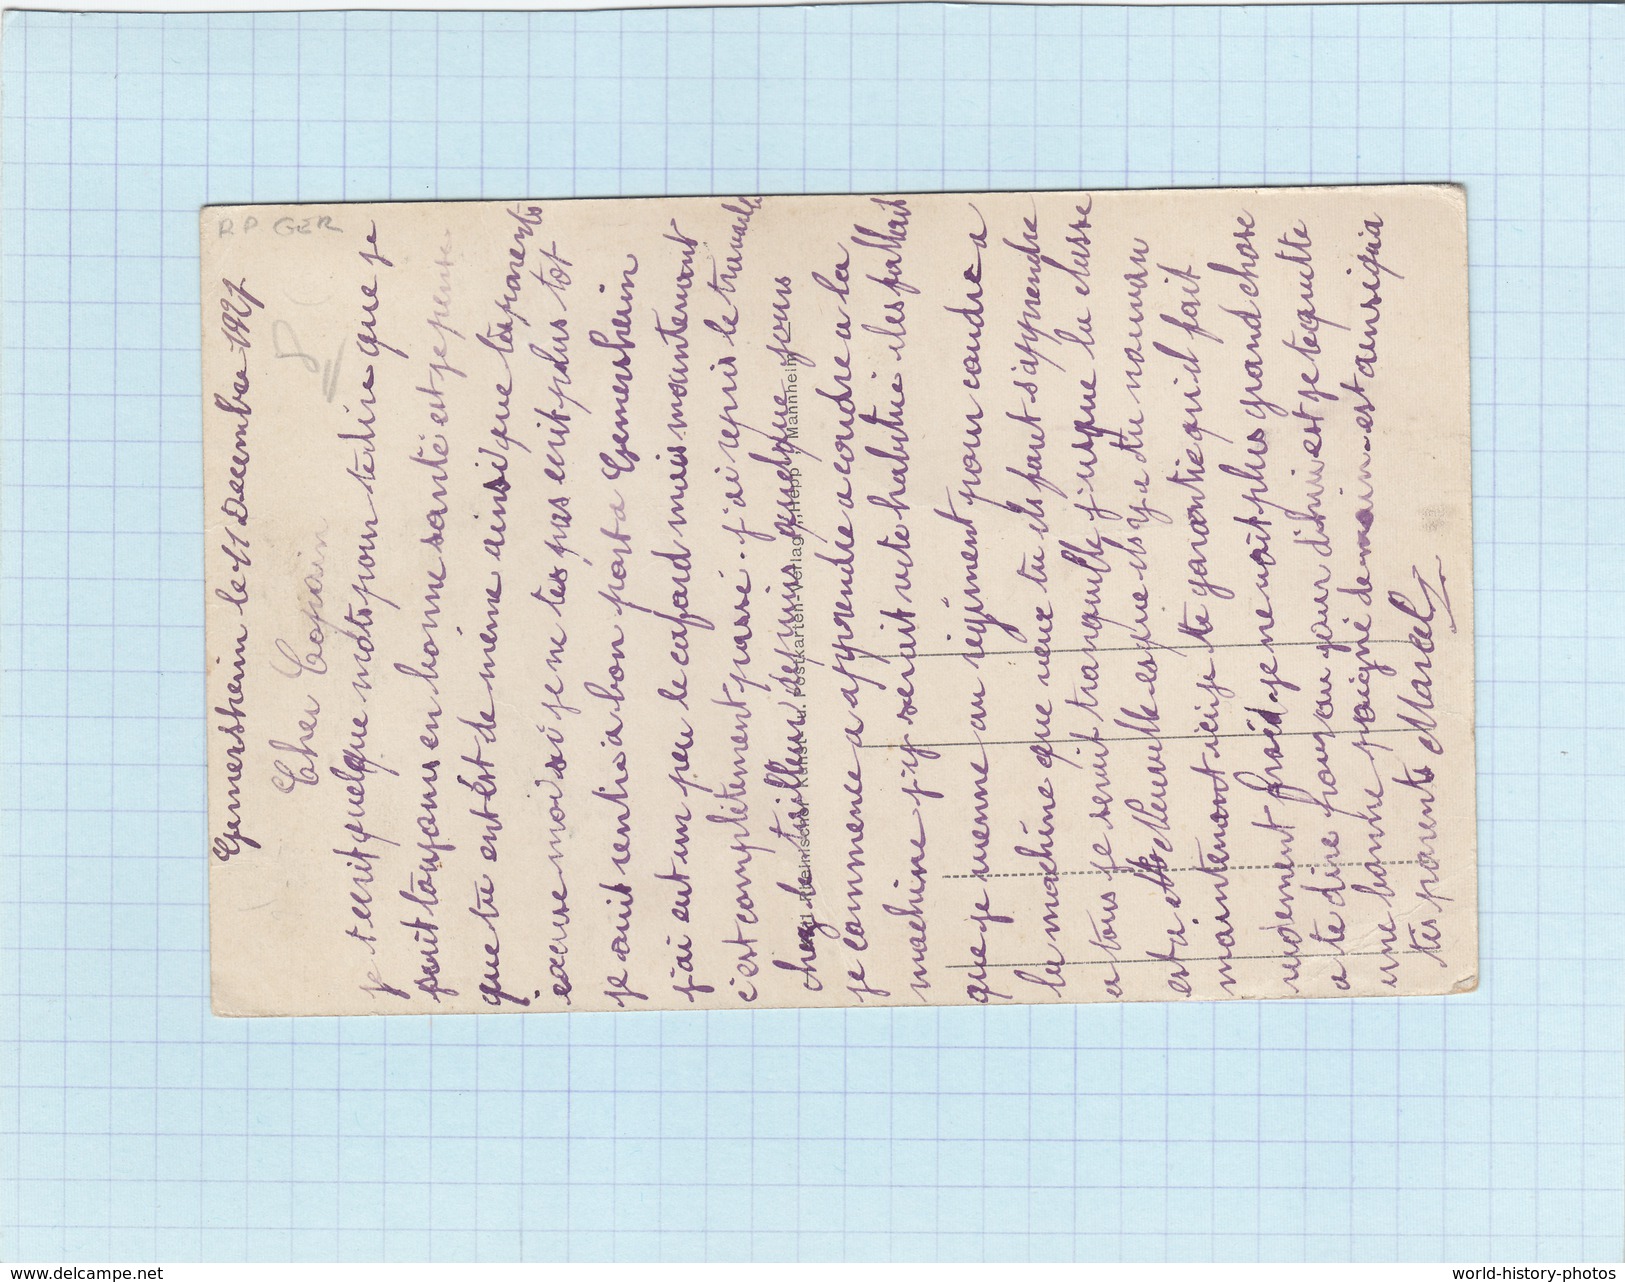 RP GER
Gemersheim le 11 Decembre 1927
Cher Copain
je tecrit quelque mots pour te dire que je
suit toujours en bonne santé et je pense
que tu est et de même ainsi que tes parents
excuse moi si je ne tes pas ecrit plus tot
je suit rentré a bon port a Gemersheim
j'ai eut un peu le cafard mais maintenant
c'est complitement passé. j'ai repris le travaille
chez le tailleur depuis quelque jours
je commence a apprendre a coudre a la
machine j'y serait vite habitué il es fallait
que je vienne au régiment pour coudre a
la machine que veux tu ils faut s'apprendre
a tous je serait tranquille jusque la classe
est a Abbeville esque ils y a du nouveau
maintenant ici je te garantie qu'il fait
rudement froid je ne voit plus grand chose
a te dire pour aujourd'hui et je te quitte
une bonne poigné de main est ausi qua
tes parents Marcel
Rheinischer Kunst- u. Postkarten-Verlag „Hepp“, Mannheim
www.delcampe.net
world-history-photos